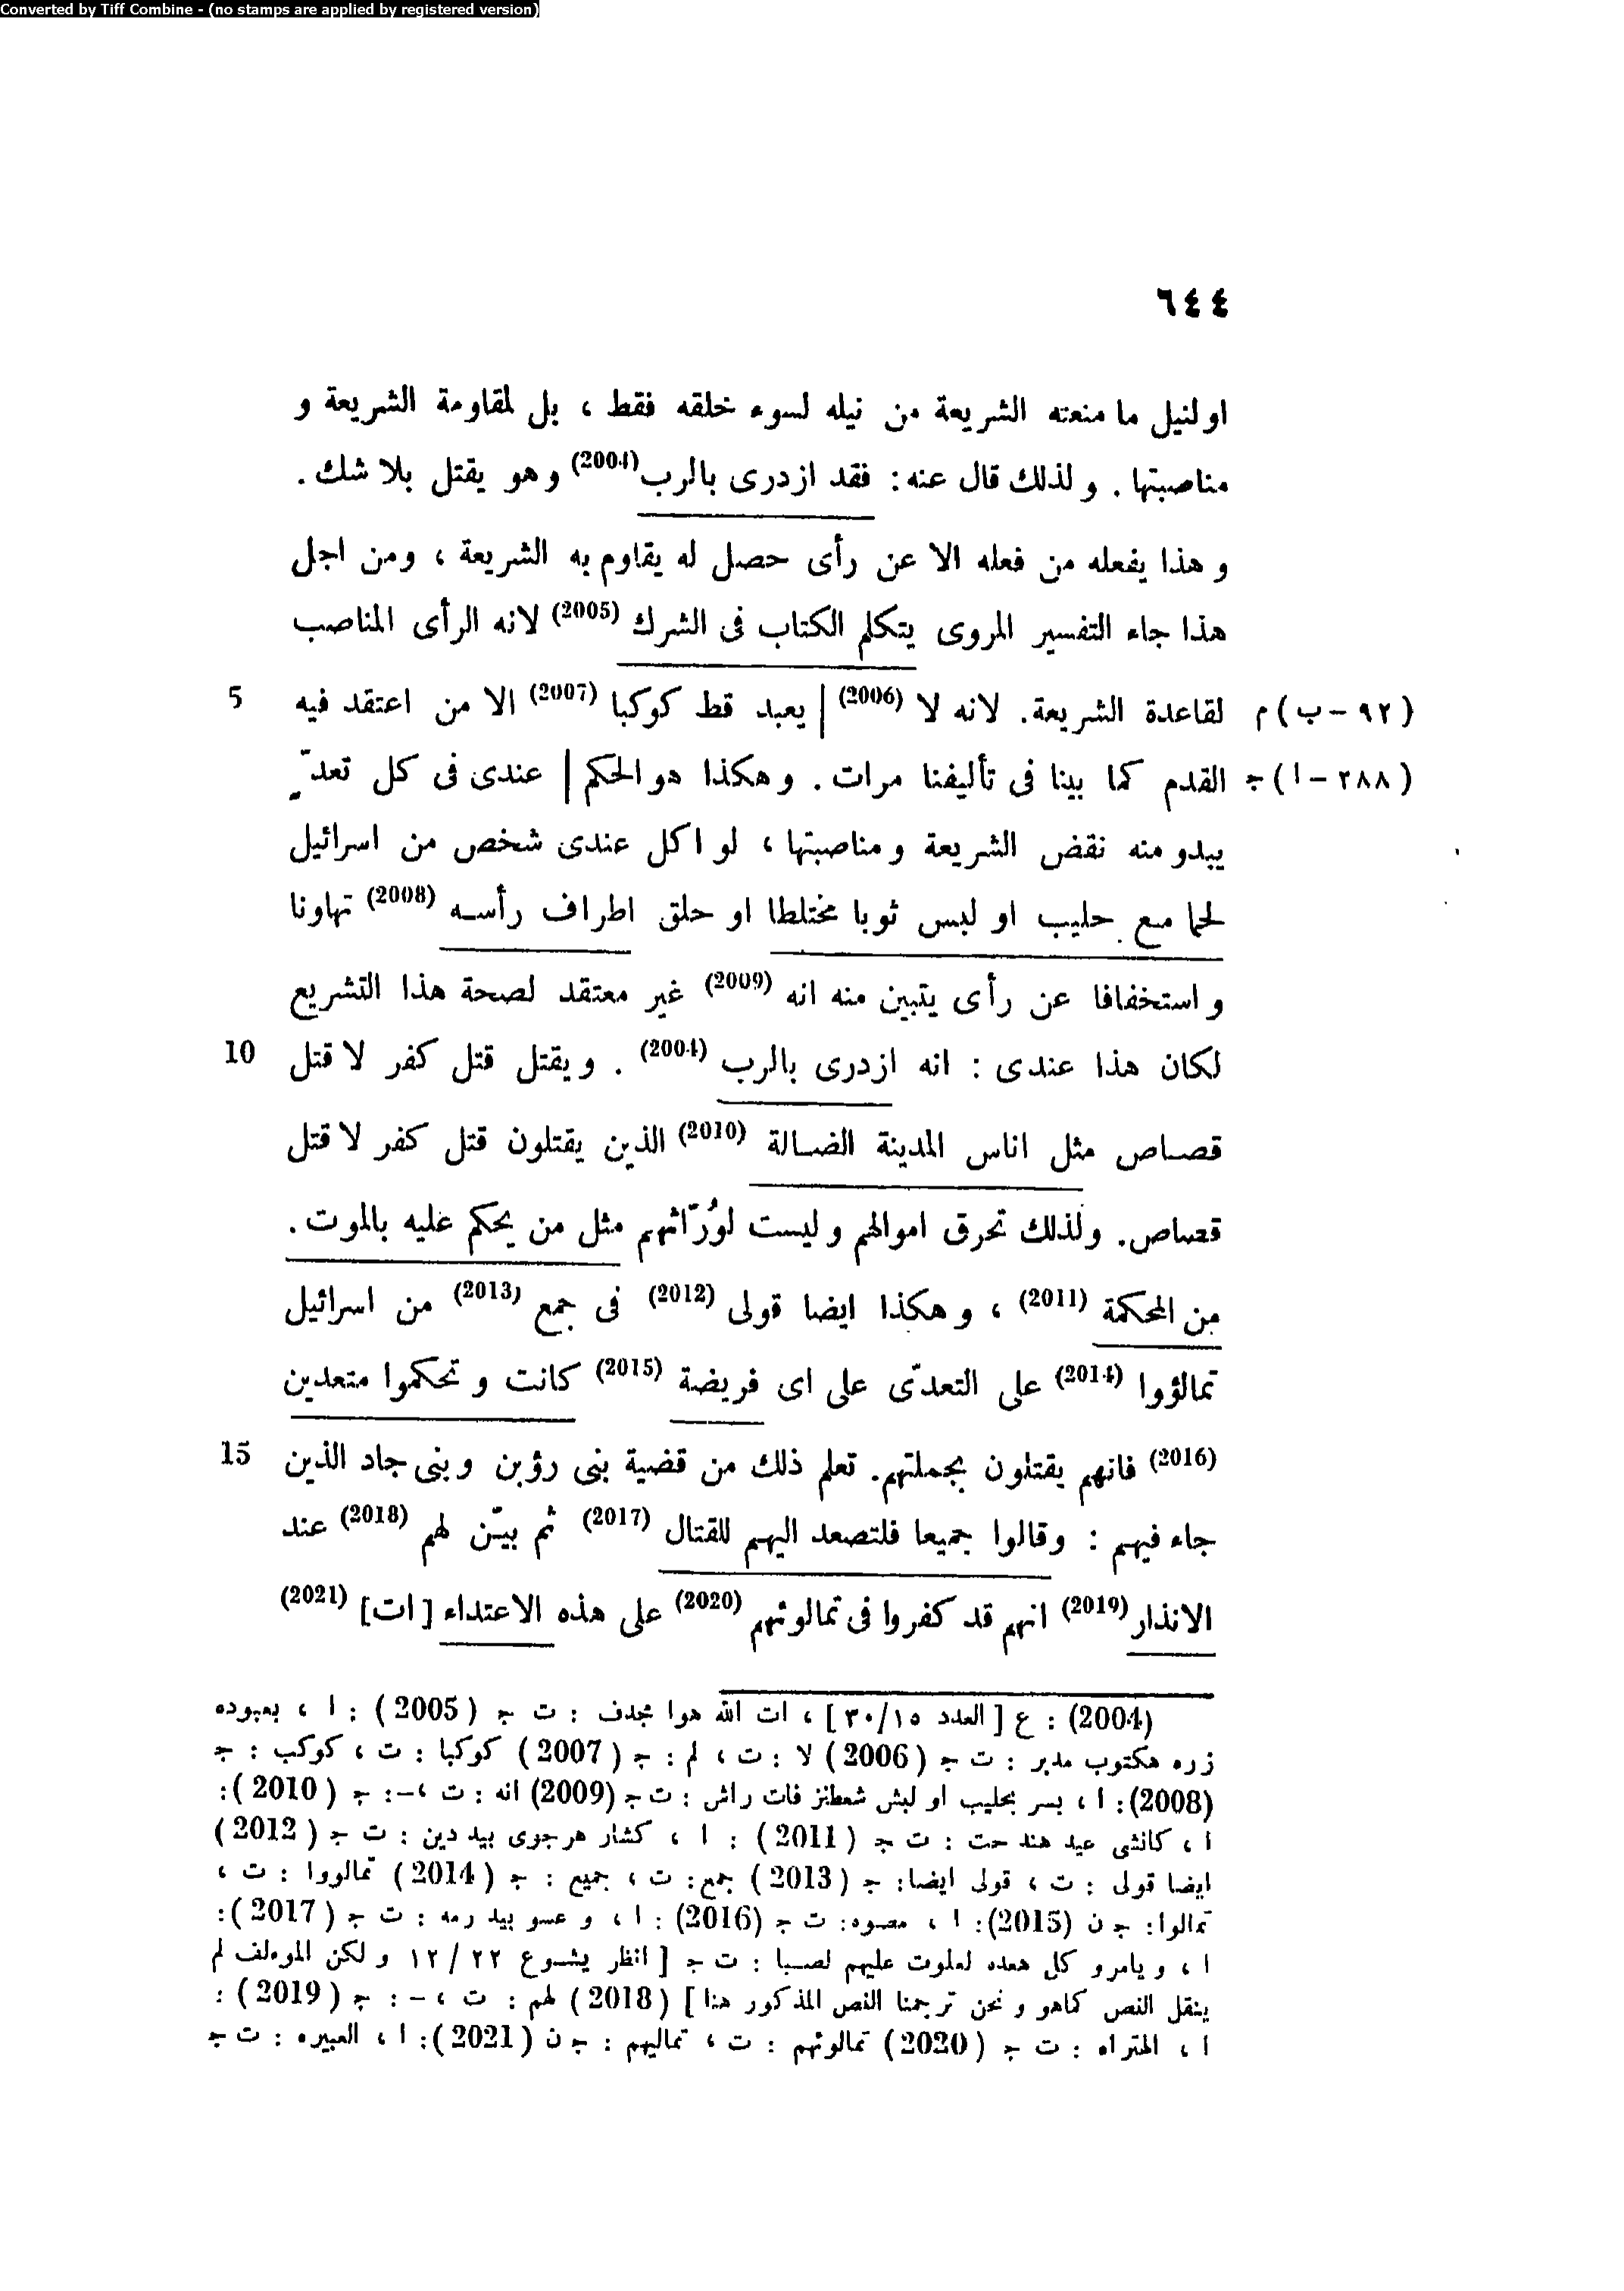 Converted by Tiff Combine - (no stamps are applied by registered version)
٦٤٤
او لنيل ما منعته الشريعة من نيله لسوء خلقه فقط ، بل لمقاومة الشريعة و
مناصبتها . و لذلك قال عنه : فقد ازدرى بالرب (2004) و هو يقتل بلا شك .
و هذا يفعله من فعله الا عن رأى حصل له يقاوم به الشريعة ، ومن اجل
هذا جاء التفسير المروى يتكلم الكتاب فى الشرك (2005) لانه الرأى المناصب
(٩٢ - ب) م لقاعدة الشريعة. لانه لا (2006) | يعبد قط كوكبا (2007) الا من اعتقد فيه 5
(٢٨٨ - ا) ج القدم كما بينا فى تأليفنا مرات . و هكذا هو الحكم | عندى فى كل تعدّ
يبدو منه نقض الشريعة و مناصبتها ، لو اكل عندى شخص من اسرائيل
لحما مع حليب او لبس ثوبا مختلطا او حلق اطراف رأسه (2008) تهاونا
و استخفافا عن رأى يتبين منه انه (2009) غير معتقد لصحة هذا التشريع
لكان هذا عندى : انه ازدرى بالرب (2004) . و يقتل قتل كفر لا قتل 10
قصاص مثل اناس المدينة الضالة (2010) الذين يقتلون قتل كفر لا قتل
قصاص. ولذلك تحرق اموالهم و ليست لوُرّاثهم مثل من يحكم عليه بالموت .
من المحكمة (2011) ، و هكذا ايضا قولى (2012) فى جمع (2013) من اسرائيل
تمالؤوا (2014) على التعدّى على اى فريضة (2015) كانت و تحكموا متعدين
(2016) فانهم يقتلون بجملتهم. تعلم ذلك من قضية بنى رؤبن و بنى جاد الذين 15
جاء فيهم : وقالوا جميعا فلتصعد اليهم للقتال (2017) ثم بيّن لهم (2018) عند
الانذار (2019) انهم قد كفروا فى تمالوئهم (2020) على هذه الاعتداء [ات] (2021)
(2004) : ع [ العدد ٣٠/١٥ ] ، ات الله هوا مجدف : ت ج (2005) : ا ، بعبوده
زره هكتوب مدبر : ت ج (2006) لا : ت ، لم : ج (2007) كوكبا : ت ، كوكب : ج
(2008) : ا ، بسر بحليب او لبش شعطنز فات راش : ت ج (2009) انه : ت ، - : ج (2010) :
ا ، كانشى عيد هند حت : ت ج (2011) : ا ، كشار هرجوى بيد دين : ت ج (2012)
ايضا قولى : ت ، قولى ايضا: ج (2013) جمع: ت ، جميع : ج (2014) تمالووا : ت ،
تمالوا: ج ن (2015): ا ، مصوه: ت ج (2016) : ا ، و عسو بيد رمه : ت ج (2017) :
ا ، و يامرو كل هعده لعلوت عليهم لصبا : ت ج [ انظر يشوع ٢٢ / ١٢ و لكن الموءلف لم
ينقل النص كماهو و نحن ترجمنا النص المذكور هنا ] (2018) لهم : ت ، - : ج (2019) :
ا ، المتراه : ت ج (2020) تمالوئهم : ت ، تماليهم : ج ن (2021): ا ، العبيره : ت ج